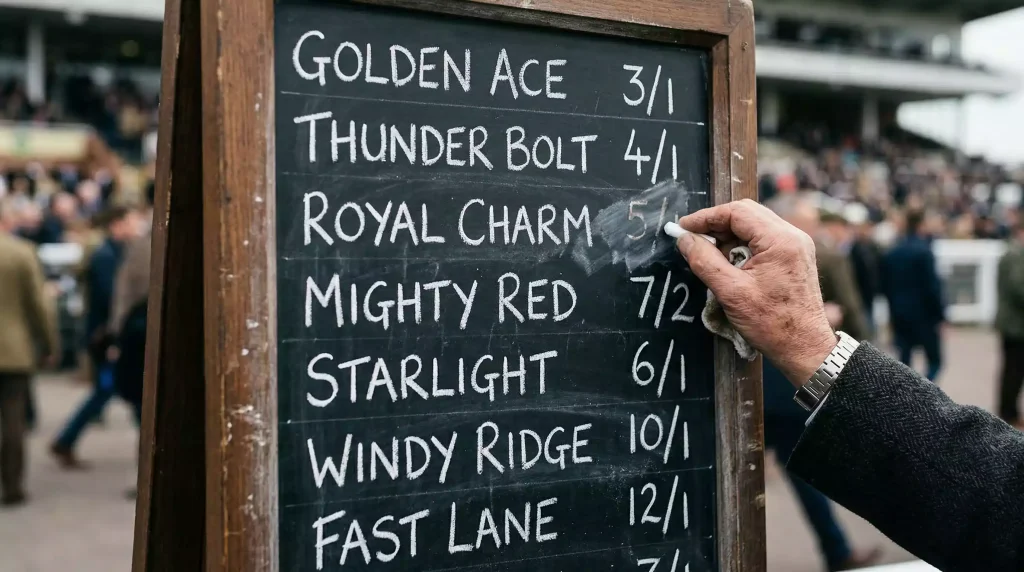 GOLDEN ACE 3/1
THUNDER BOLT 4/1
ROYAL CHARM 5/
MIGHTY RED 7/2
STARLIGHT 6/1
WINDY RIDGE 10/1
FAST LANE 12/1